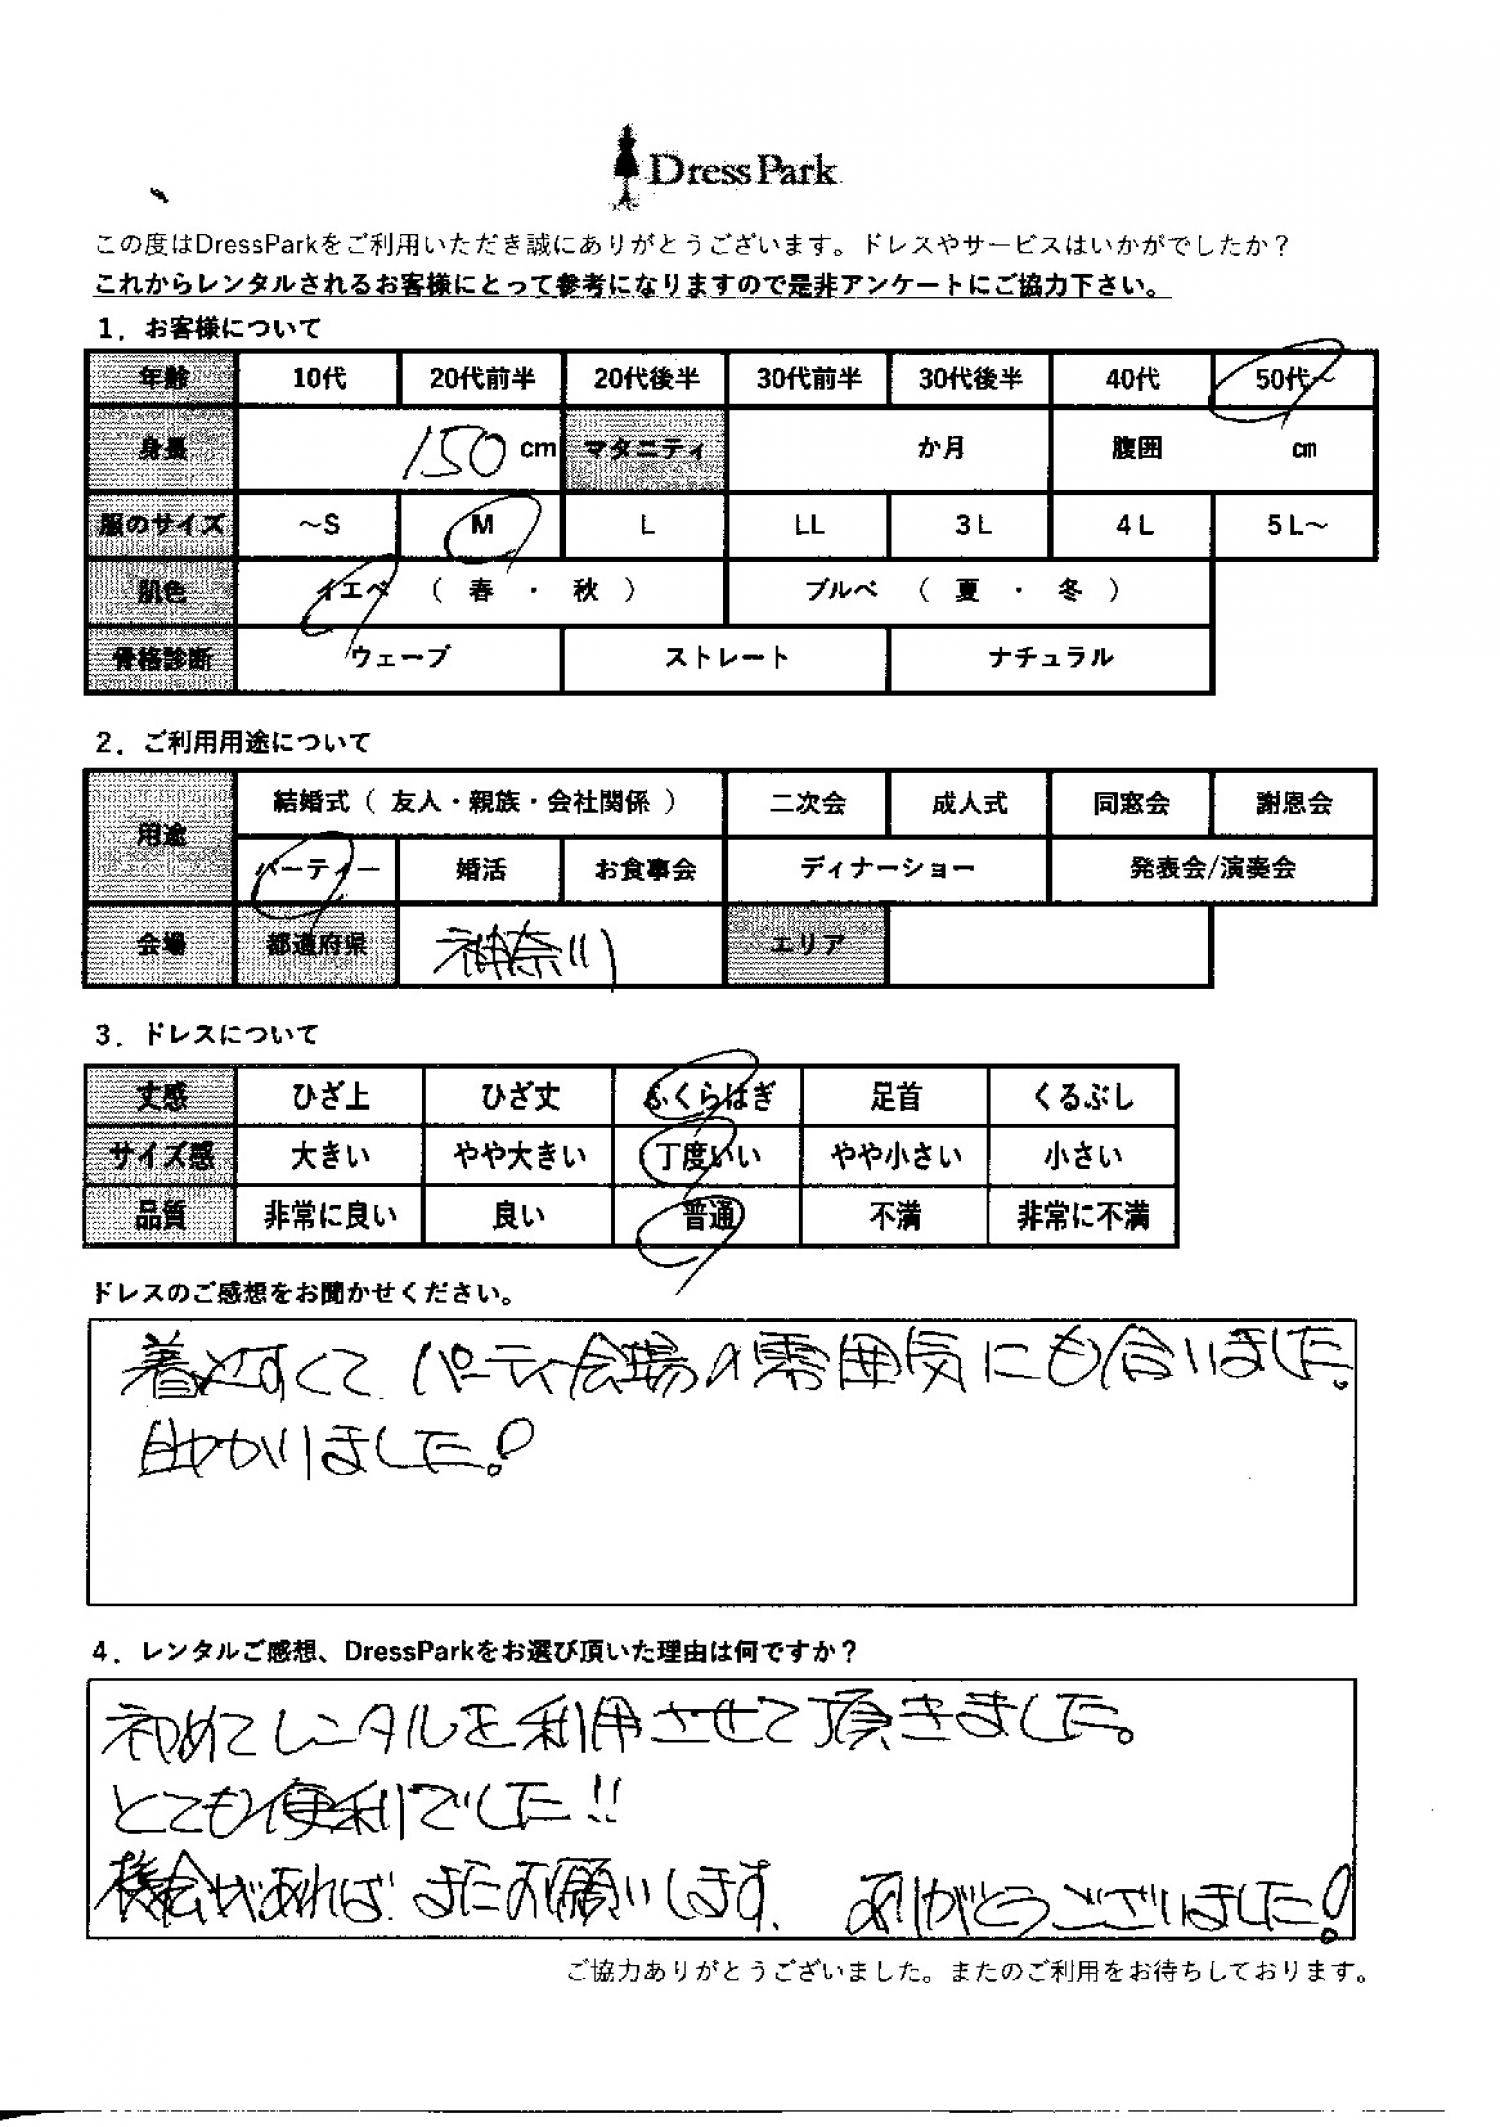 Dress Park
この度はDressParkをご利用いただき誠にありがとうございます。ドレスやサービスはいかがでしたか？
これからレンタルされるお客様にとって参考になりますので是非アンケートにご協力下さい。
1．お客様について
年齢 10代 20代前半 20代後半 30代前半 30代後半 40代 50代～
身長 150 cm マタニティ か月 腹囲 cm
服のサイズ ～S M L LL 3L 4L 5L～
肌色 イエベ （ 春 ・ 秋 ） ブルベ （ 夏 ・ 冬 ）
骨格診断 ウェーブ ストレート ナチュラル
2．ご利用用途について
用途 結婚式（ 友人・親族・会社関係 ） 二次会 成人式 同窓会 謝恩会
パーティー 婚活 お食事会 ディナーショー 発表会/演奏会
会場 都道府県 神奈川 エリア
3．ドレスについて
丈感 ひざ上 ひざ丈 ふくらはぎ 足首 くるぶし
サイズ感 大きい やや大きい 丁度いい やや小さい 小さい
品質 非常に良い 良い 普通 不満 非常に不満
ドレスのご感想をお聞かせください。
着やすくて パーティー会場の雰囲気にも合いました。
助かりました！
4．レンタルご感想、DressParkをお選び頂いた理由は何ですか？
初めてレンタルを利用させて頂きました。
とても便利でした!!
機会があれば またお願いします。 ありがとうございました！
ご協力ありがとうございました。またのご利用をお待ちしております。